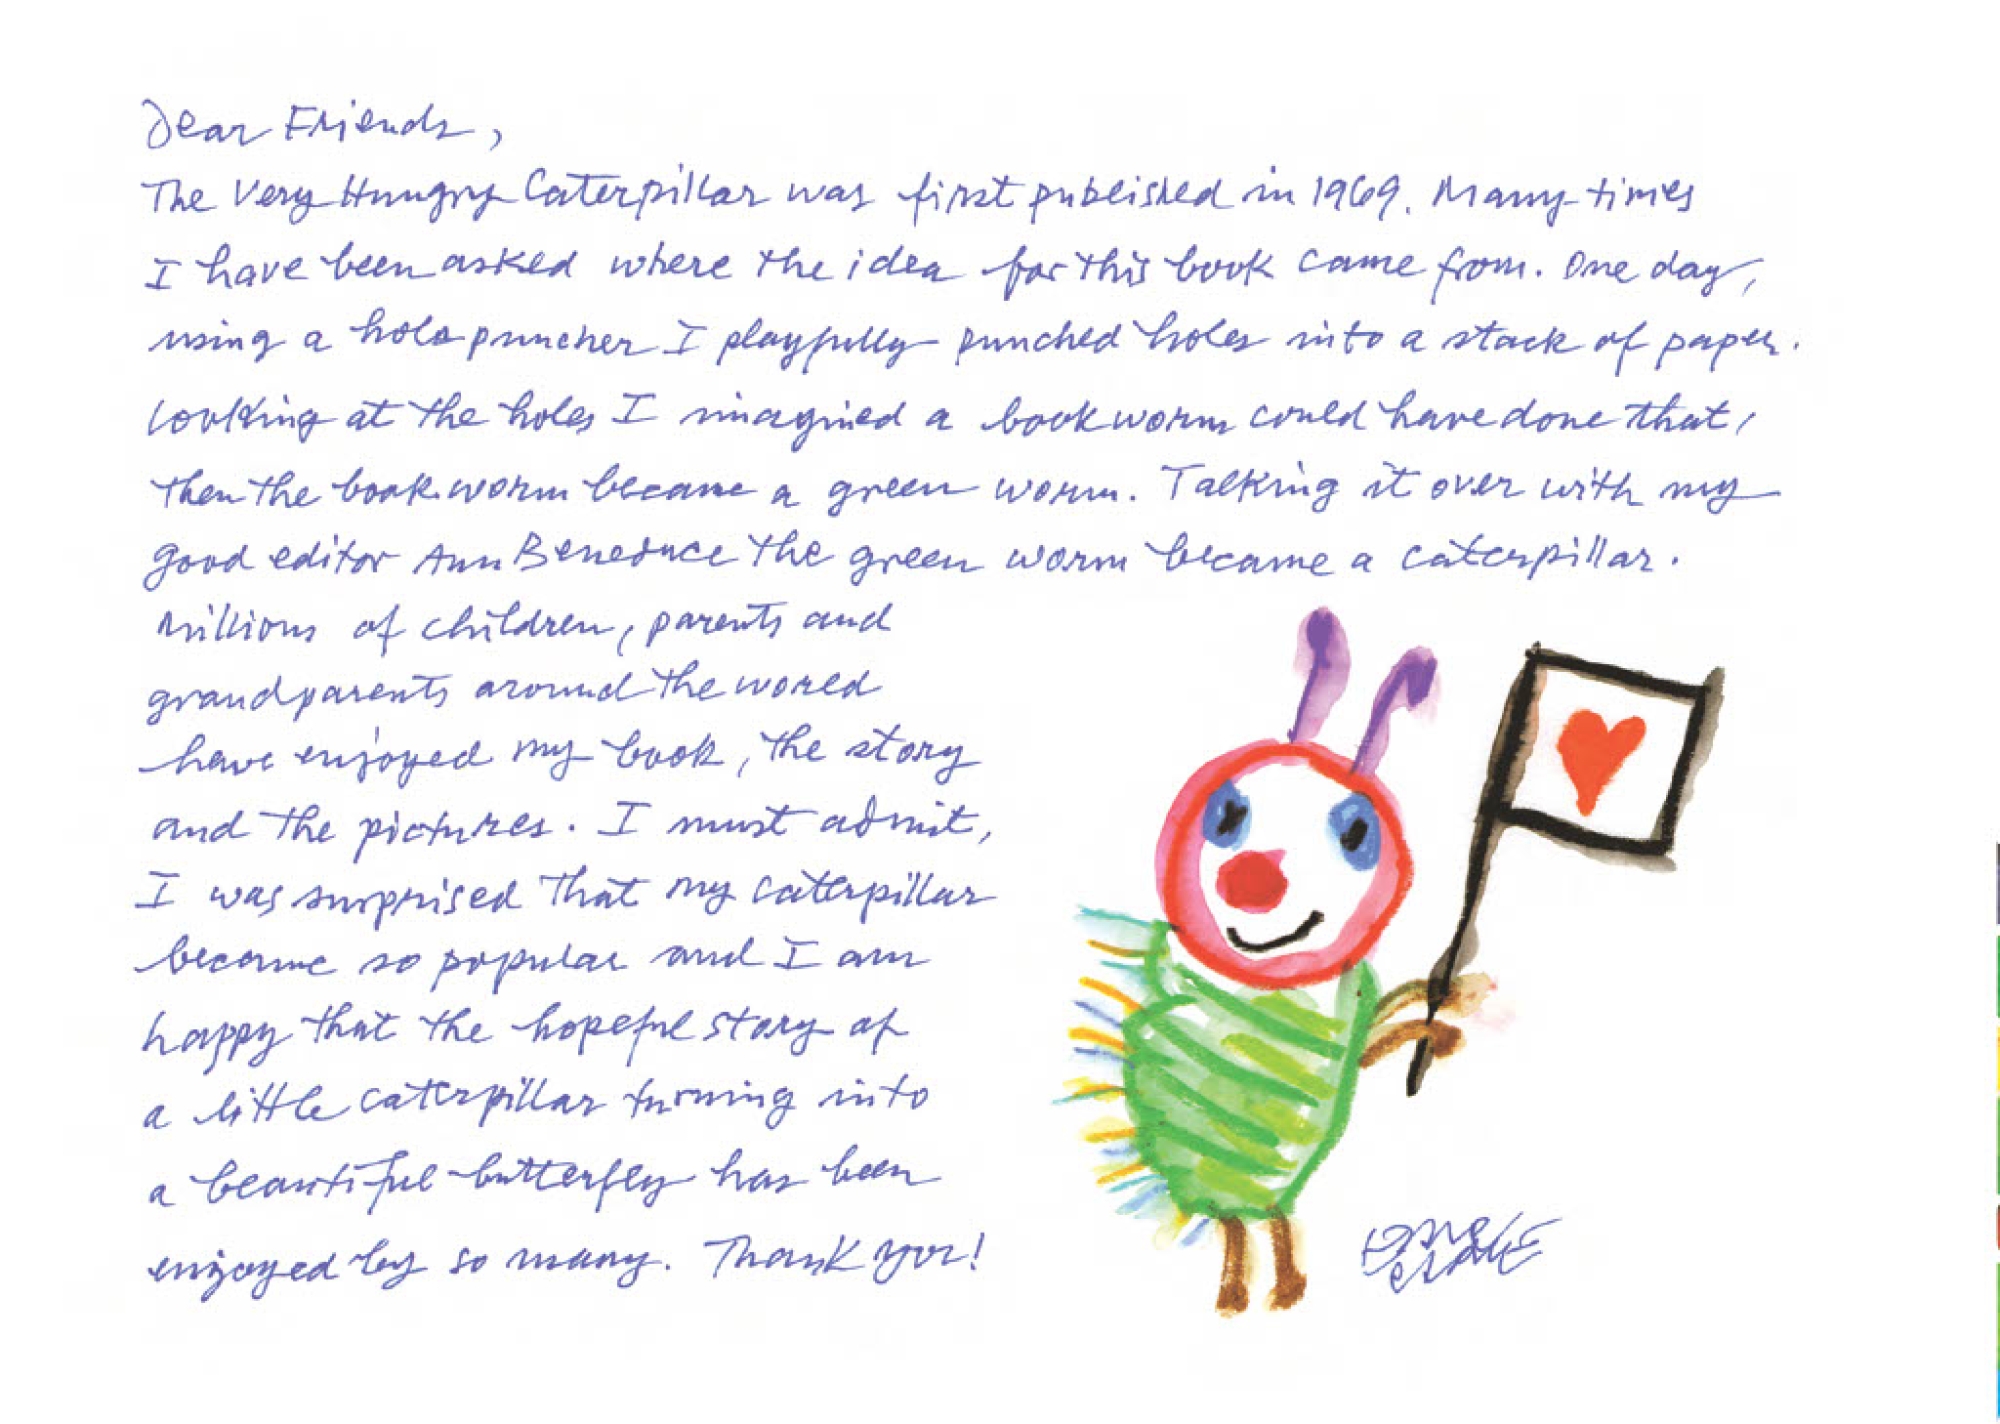 Dear Friends,
The Very Hungry Caterpillar was first published in 1969. Many times
I have been asked where the idea for this book came from. One day,
using a hole puncher I playfully punched holes into a stack of paper.
Looking at the holes I imagined a bookworm could have done that,
then the bookworm became a green worm. Talking it over with my
good editor Ann Beneduce the green worm became a caterpillar.
Millions of children, parents and
grandparents around the world
have enjoyed my book, the story
and the pictures. I must admit,
I was surprised that my caterpillar
became so popular and I am
happy that the hopeful story of
a little caterpillar turning into
a beautiful butterfly has been
enjoyed by so many. Thank you!
Eric Carle